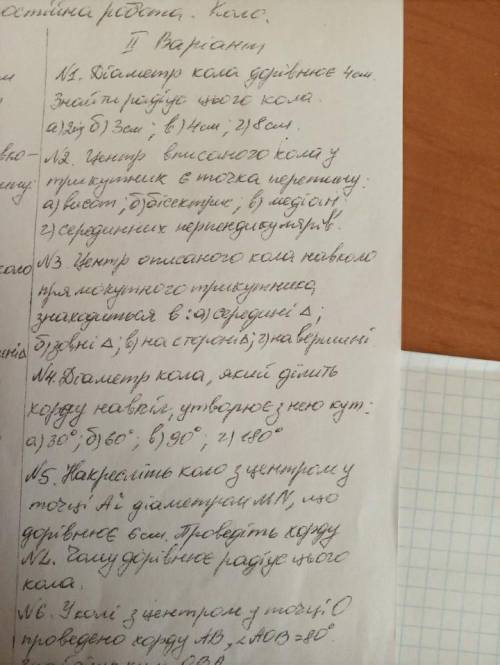 остійна робота. Коло.
II Варіант
N1. Діаметр кола дорівнює 4см.
Знайти радіус цього кола.
а) 2см б) 3см; в) 4см; г) 8см.
N2. Центр вписаного кола у
трикутник є точка перетину:
а) висот; б) бісектрис; в) медіан
г) серединних перпендикулярів.
N3. Центр описаного кола навколо
прямокутного трикутника
знаходиться в: а) середині △;
б) зовні △; в) на стороні △; г) на вершині
N4. Діаметр кола, який ділить
хорду навпіл, утворює з нею кут:
а) 30°; б) 60°; в) 90°; г) 180°
N5. Накресліть коло з центром у
точці А і діаметром MN, що
дорівнює 6см. Проведіть хорду
NL. Чому дорівнює радіус цього
кола.
N6. У колі з центром у точці О
проведено хорду АВ, ∠AOB=80°.
ОВА